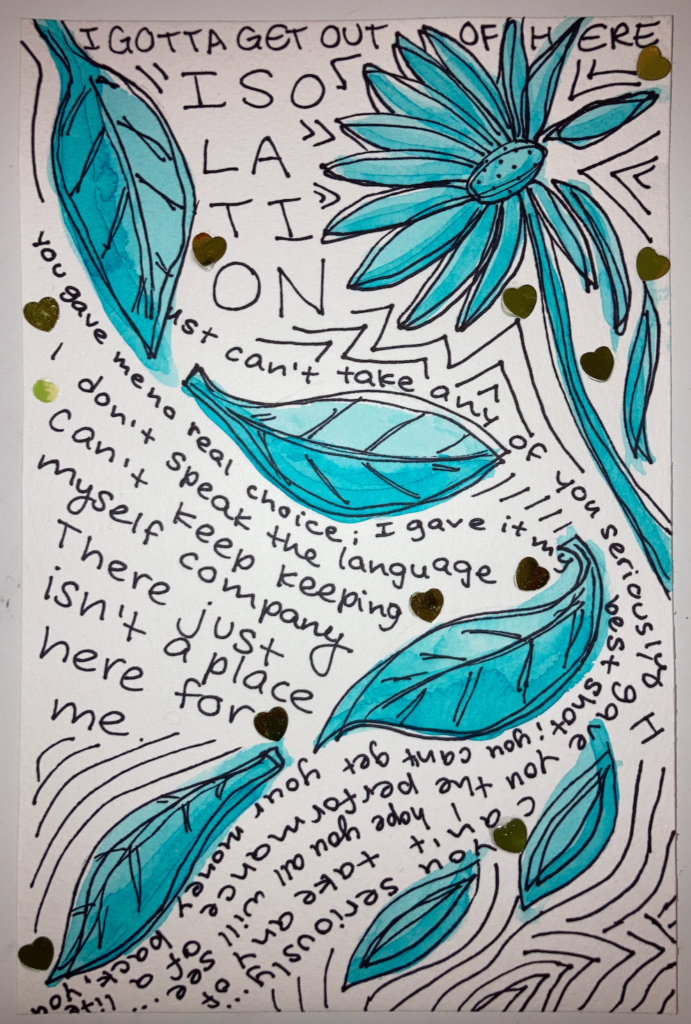 I GOTTA GET OUT OF HERE
ISO
LA
TI
ON
ust can't take any of you seriously
you gave me no real choice; I gave it my
best shot; you cant get your money back, you
I don't speak the language
can't keep keeping
myself company
There just
isn't a place
here for
me.
I gave you the performance of a life
I hope you all will see...
can't take any of...
you seriously